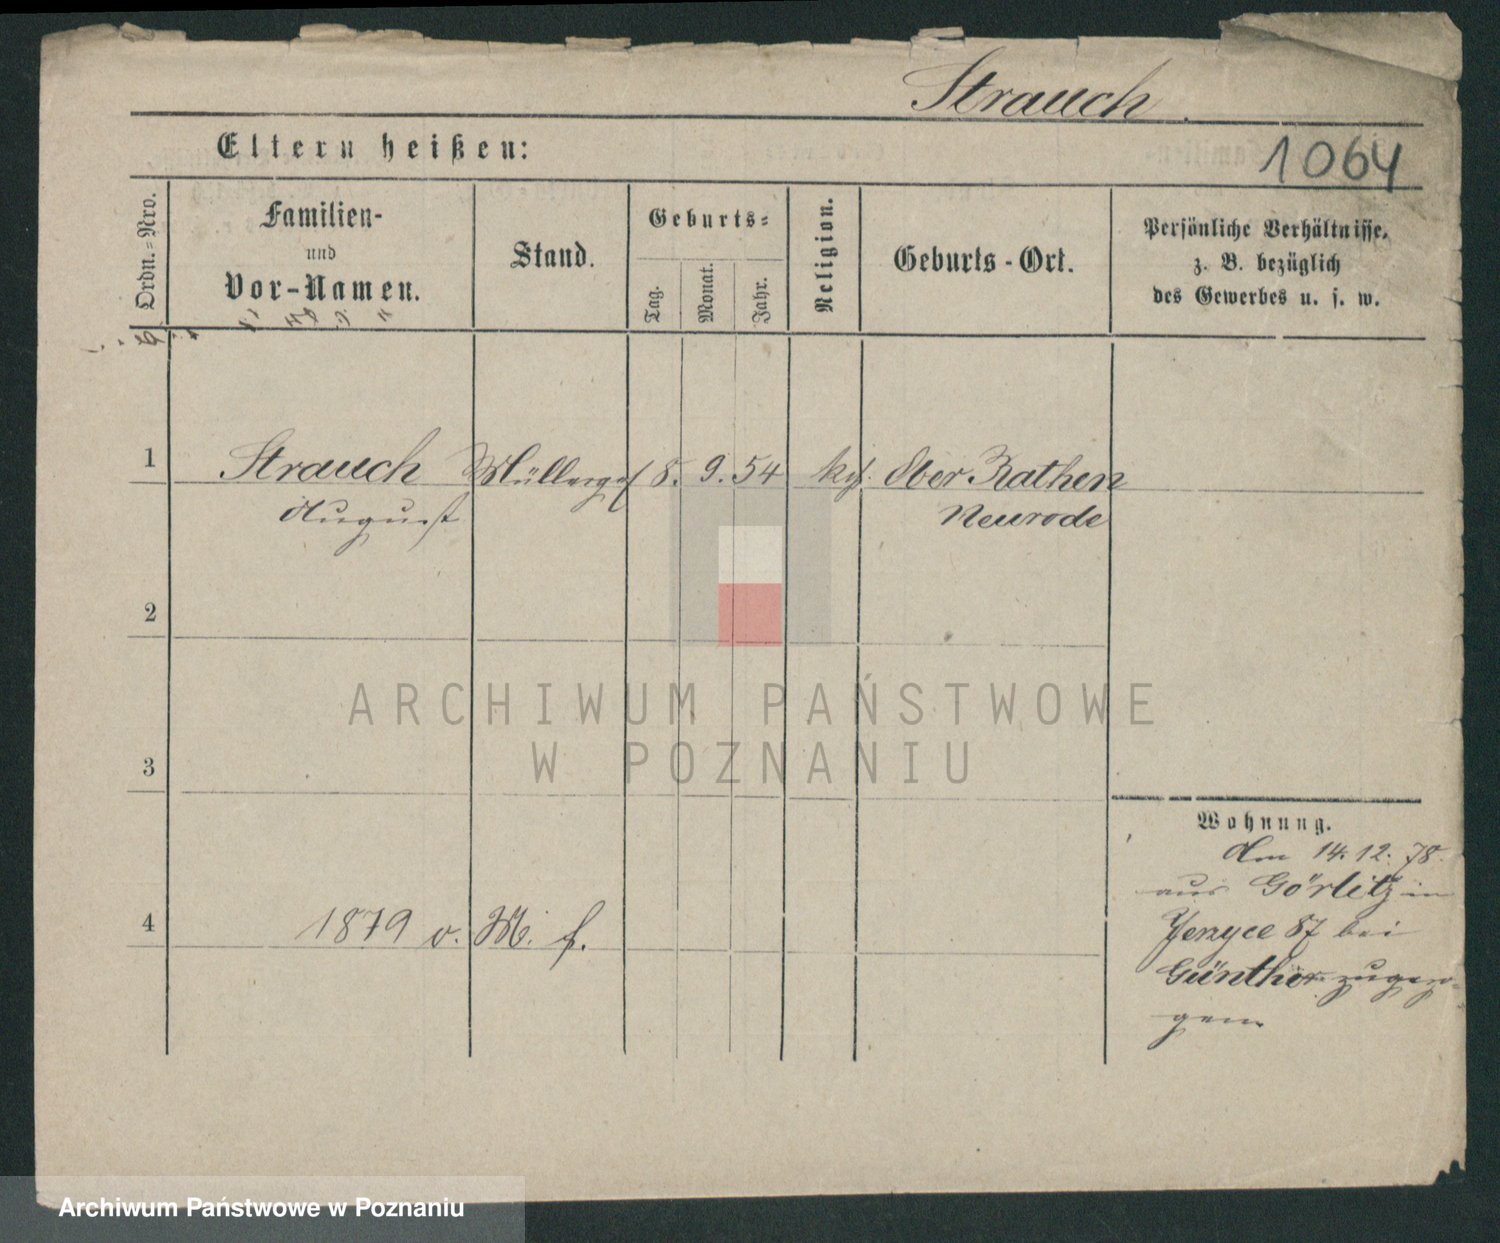 Strauch.
Eltern heißen:
1064
Ordn.-Nro.
Familien-
und
Vor-Namen.
Stand.
Geburts-
Tag.
Monat.
Jahr.
Religion.
Geburts-Ort.
Persönliche Verhältnisse,
z. B. bezüglich
des Gewerbes u. s. w.
1 Strauch Müllerges 8. 9. 54 kath. Ober Rathen
August Neurode
2
ARCHIWUM PAŃSTWOWE
W POZNANIU
3
Wohnung.
den 14.12.78.
aus Görlitz in
Jerzyce 87 bei
Günther zugezo-
gen
4 1879 v. M. f.
Archiwum Państwowe w Poznaniu